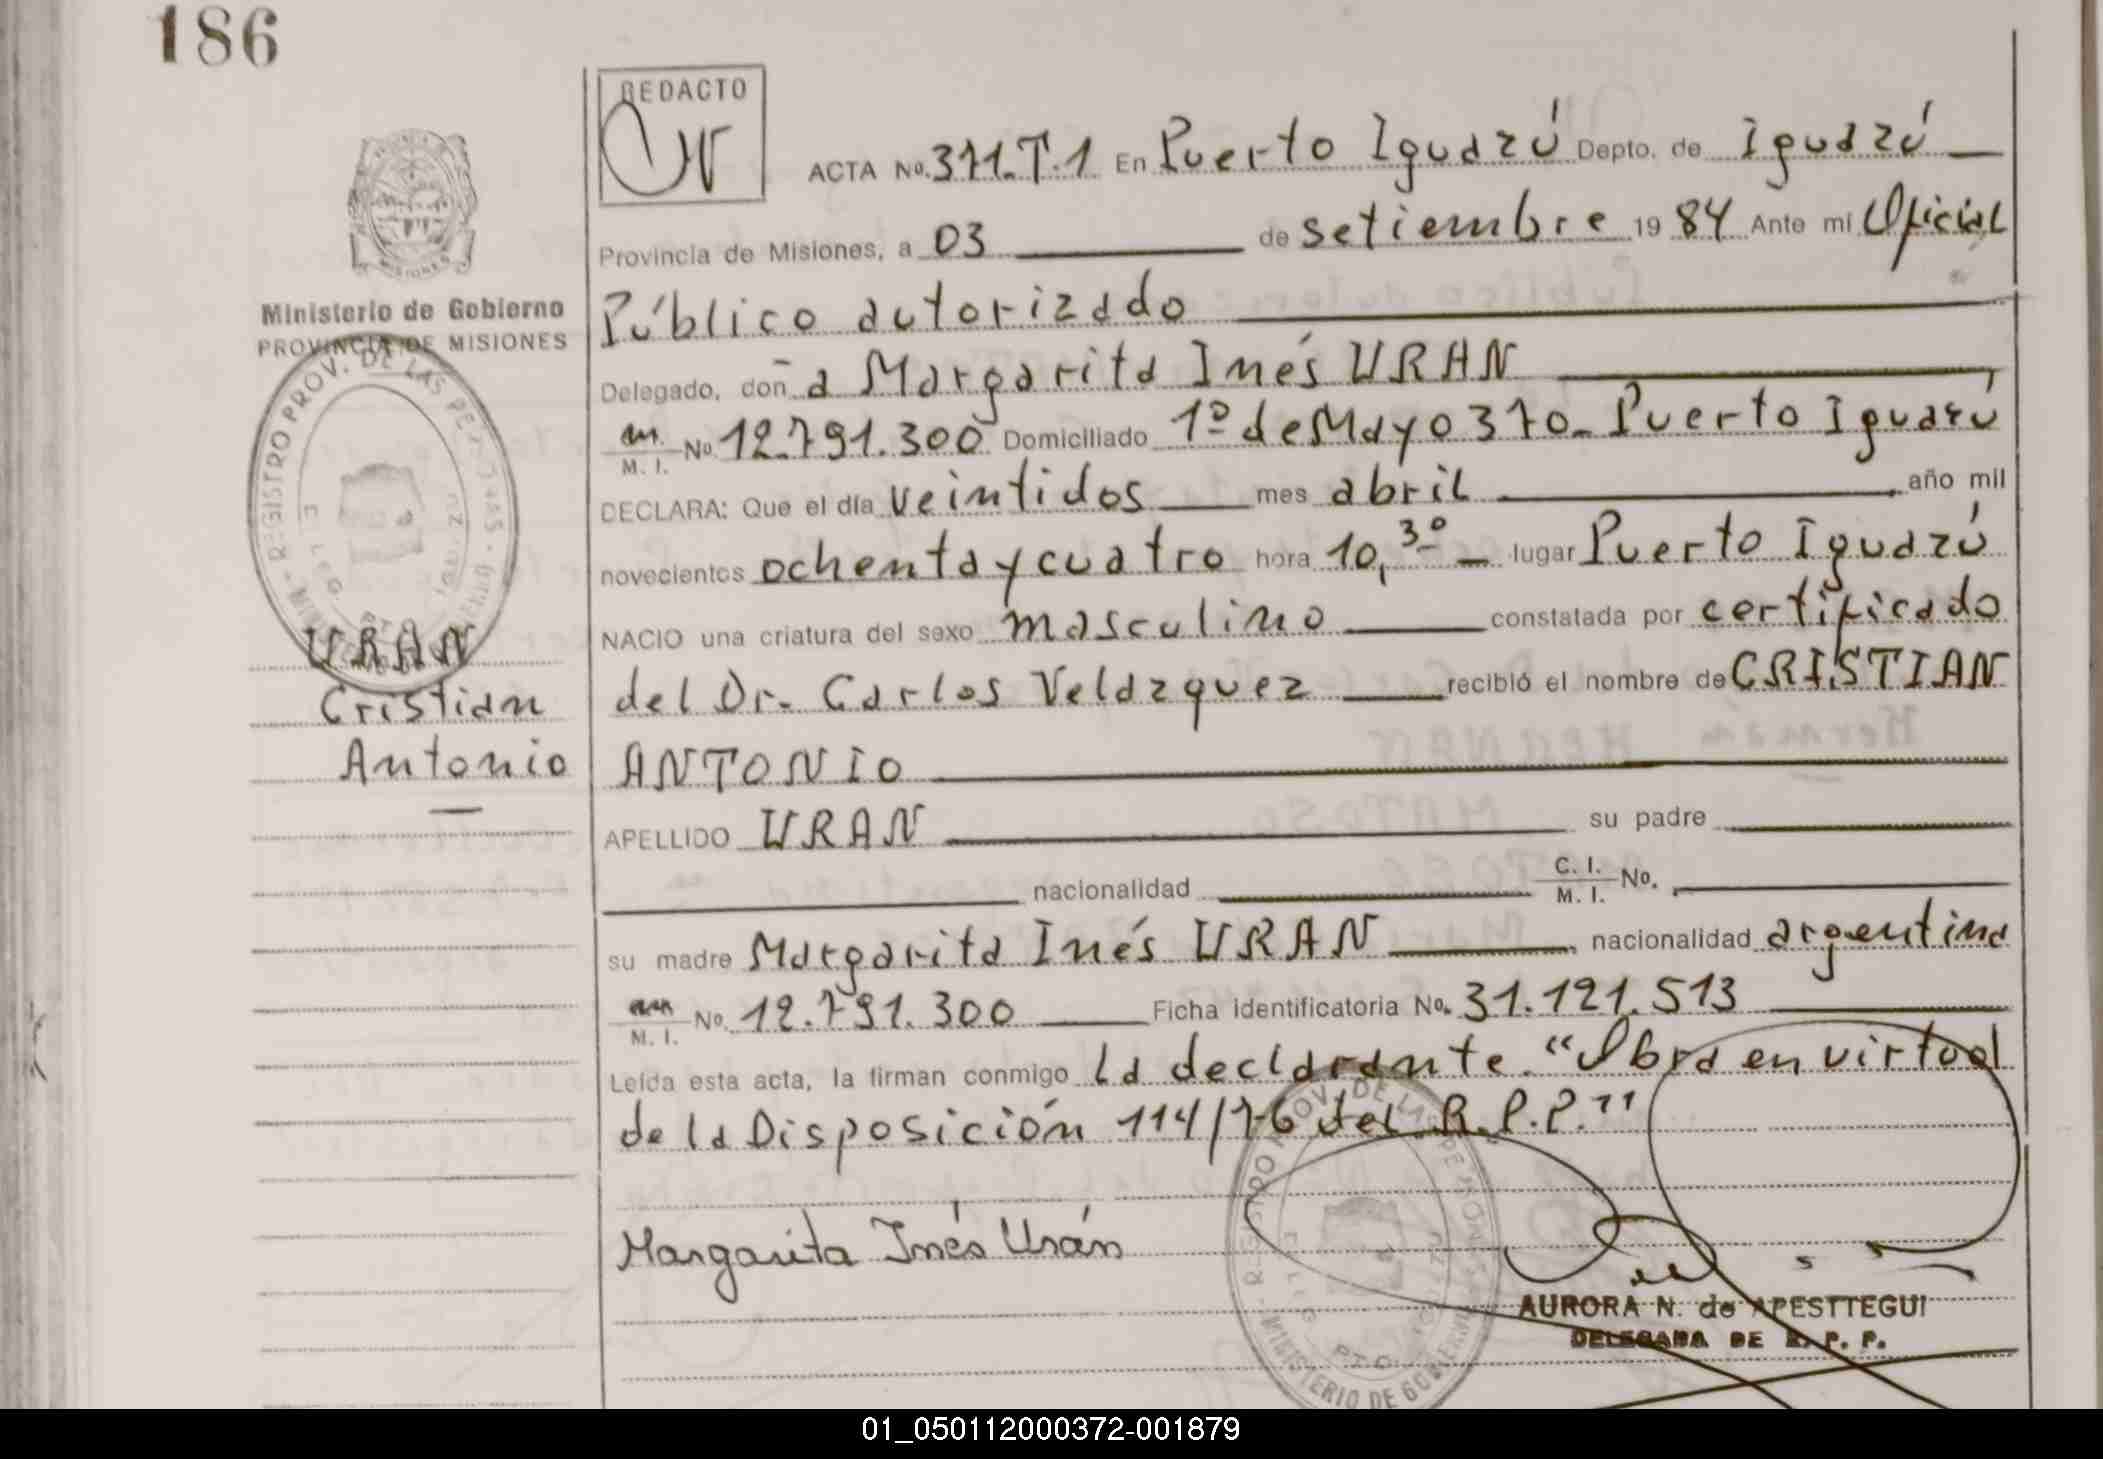 186
REDACTO
ACTA No. 371.T.1 En Puerto Iguazú Depto. de Iguazú
Provincia de Misiones, a 03 de setiembre 19 84 Ante mi Oficial
Público autorizado
Delegado, don̄a Margarita Inés URAN
M. I. No. 12.791.300 Domiciliado 1º de Mayo 370_ Puerto Iguazú
DECLARA: Que el día veintidos mes abril año mil
novecientos ochenta y cuatro hora 10,30 lugar Puerto Iguazú
NACIO una criatura del sexo masculino constatada por certificado
del Dr. Carlos Velazquez recibió el nombre de CRISTIAN
ANTONIO
APELLIDO URAN su padre
nacionalidad C. I. M. I. No.
su madre Margarita Inés URAN nacionalidad argentina
M. I. No. 12.791.300 Ficha identificatoria No. 31.121.513
Leída esta acta, la firman conmigo la declarante. "Obra en virtud
de la Disposición 114/76 del R.P.P."
Margarita Inés Urán
AURORA N. de APESTTEGUI
DELEGADA DE R. P. P.
MISIONES
Ministerio de Gobierno
PROVINCIA DE MISIONES
REGISTRO PROV. DE LAS PERSONAS
URAN
Cristian
Antonio
REGISTRO PROV. DE LAS PERSONAS
MINISTERIO DE GOBIERNO
01_050112000372-001879